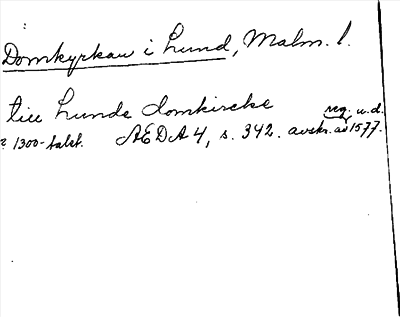 Domkyrkan i Lund, Malm. l.
till Lunde domkircke
reg. u.d.
? 1300-talet. AEDA 4, s. 342. avskr. av 1577.